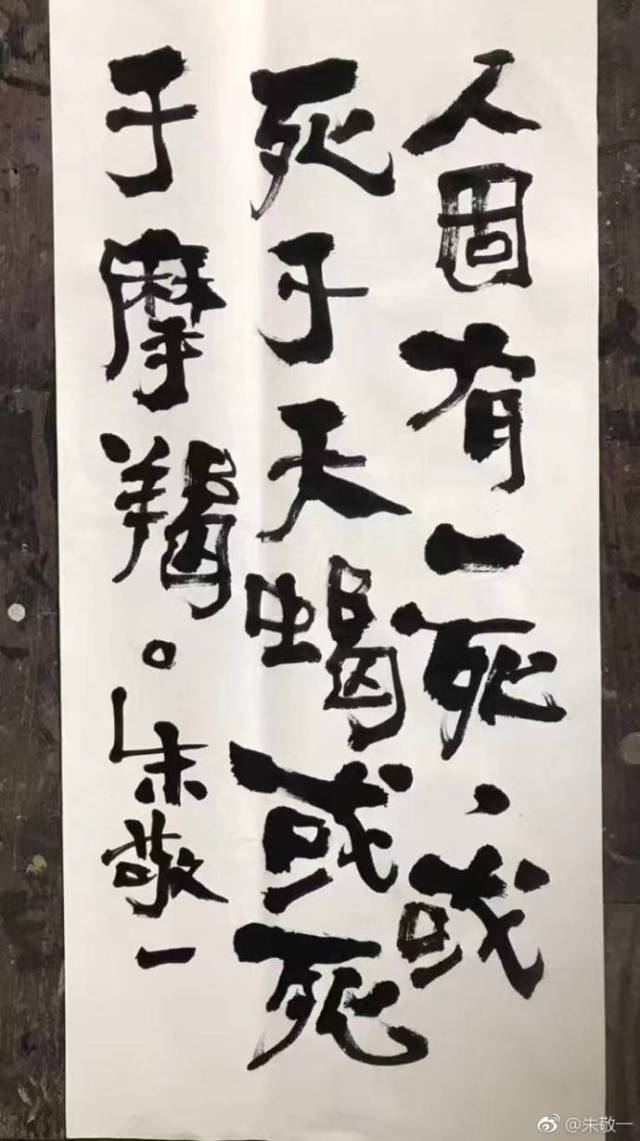 人固有一死，或
死于天蝎或死
于摩羯。朱敬一
@朱敬一